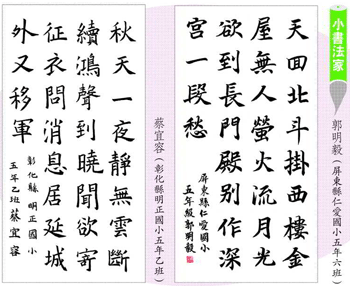 小書法家
郭明毅(屏東縣仁愛國小五年六班)
天回北斗掛西樓金
屋無人螢火流月光
欲到長門殿別作深
宮一段愁
屏東縣仁愛國小
五年級郭明毅
蔡宜容(彰化縣明正國小五年乙班)
秋天一夜靜無雲斷
續鴻聲到曉聞欲寄
征衣問消息居延城
外又移軍
彰化縣明正國小
五年乙班蔡宜容